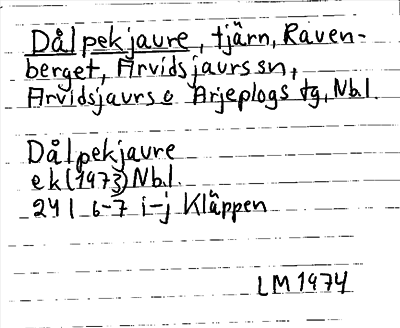 Dålpekjaure, tjärn, Raven-
berget, Arvidsjaurs sn,
Arvidsjaurs o Arjeplogs tg, Nb.l.
Dålpekjaure
ek (1973) Nb.l.
24 I 6-7 i-j Kläppen
LM 1974